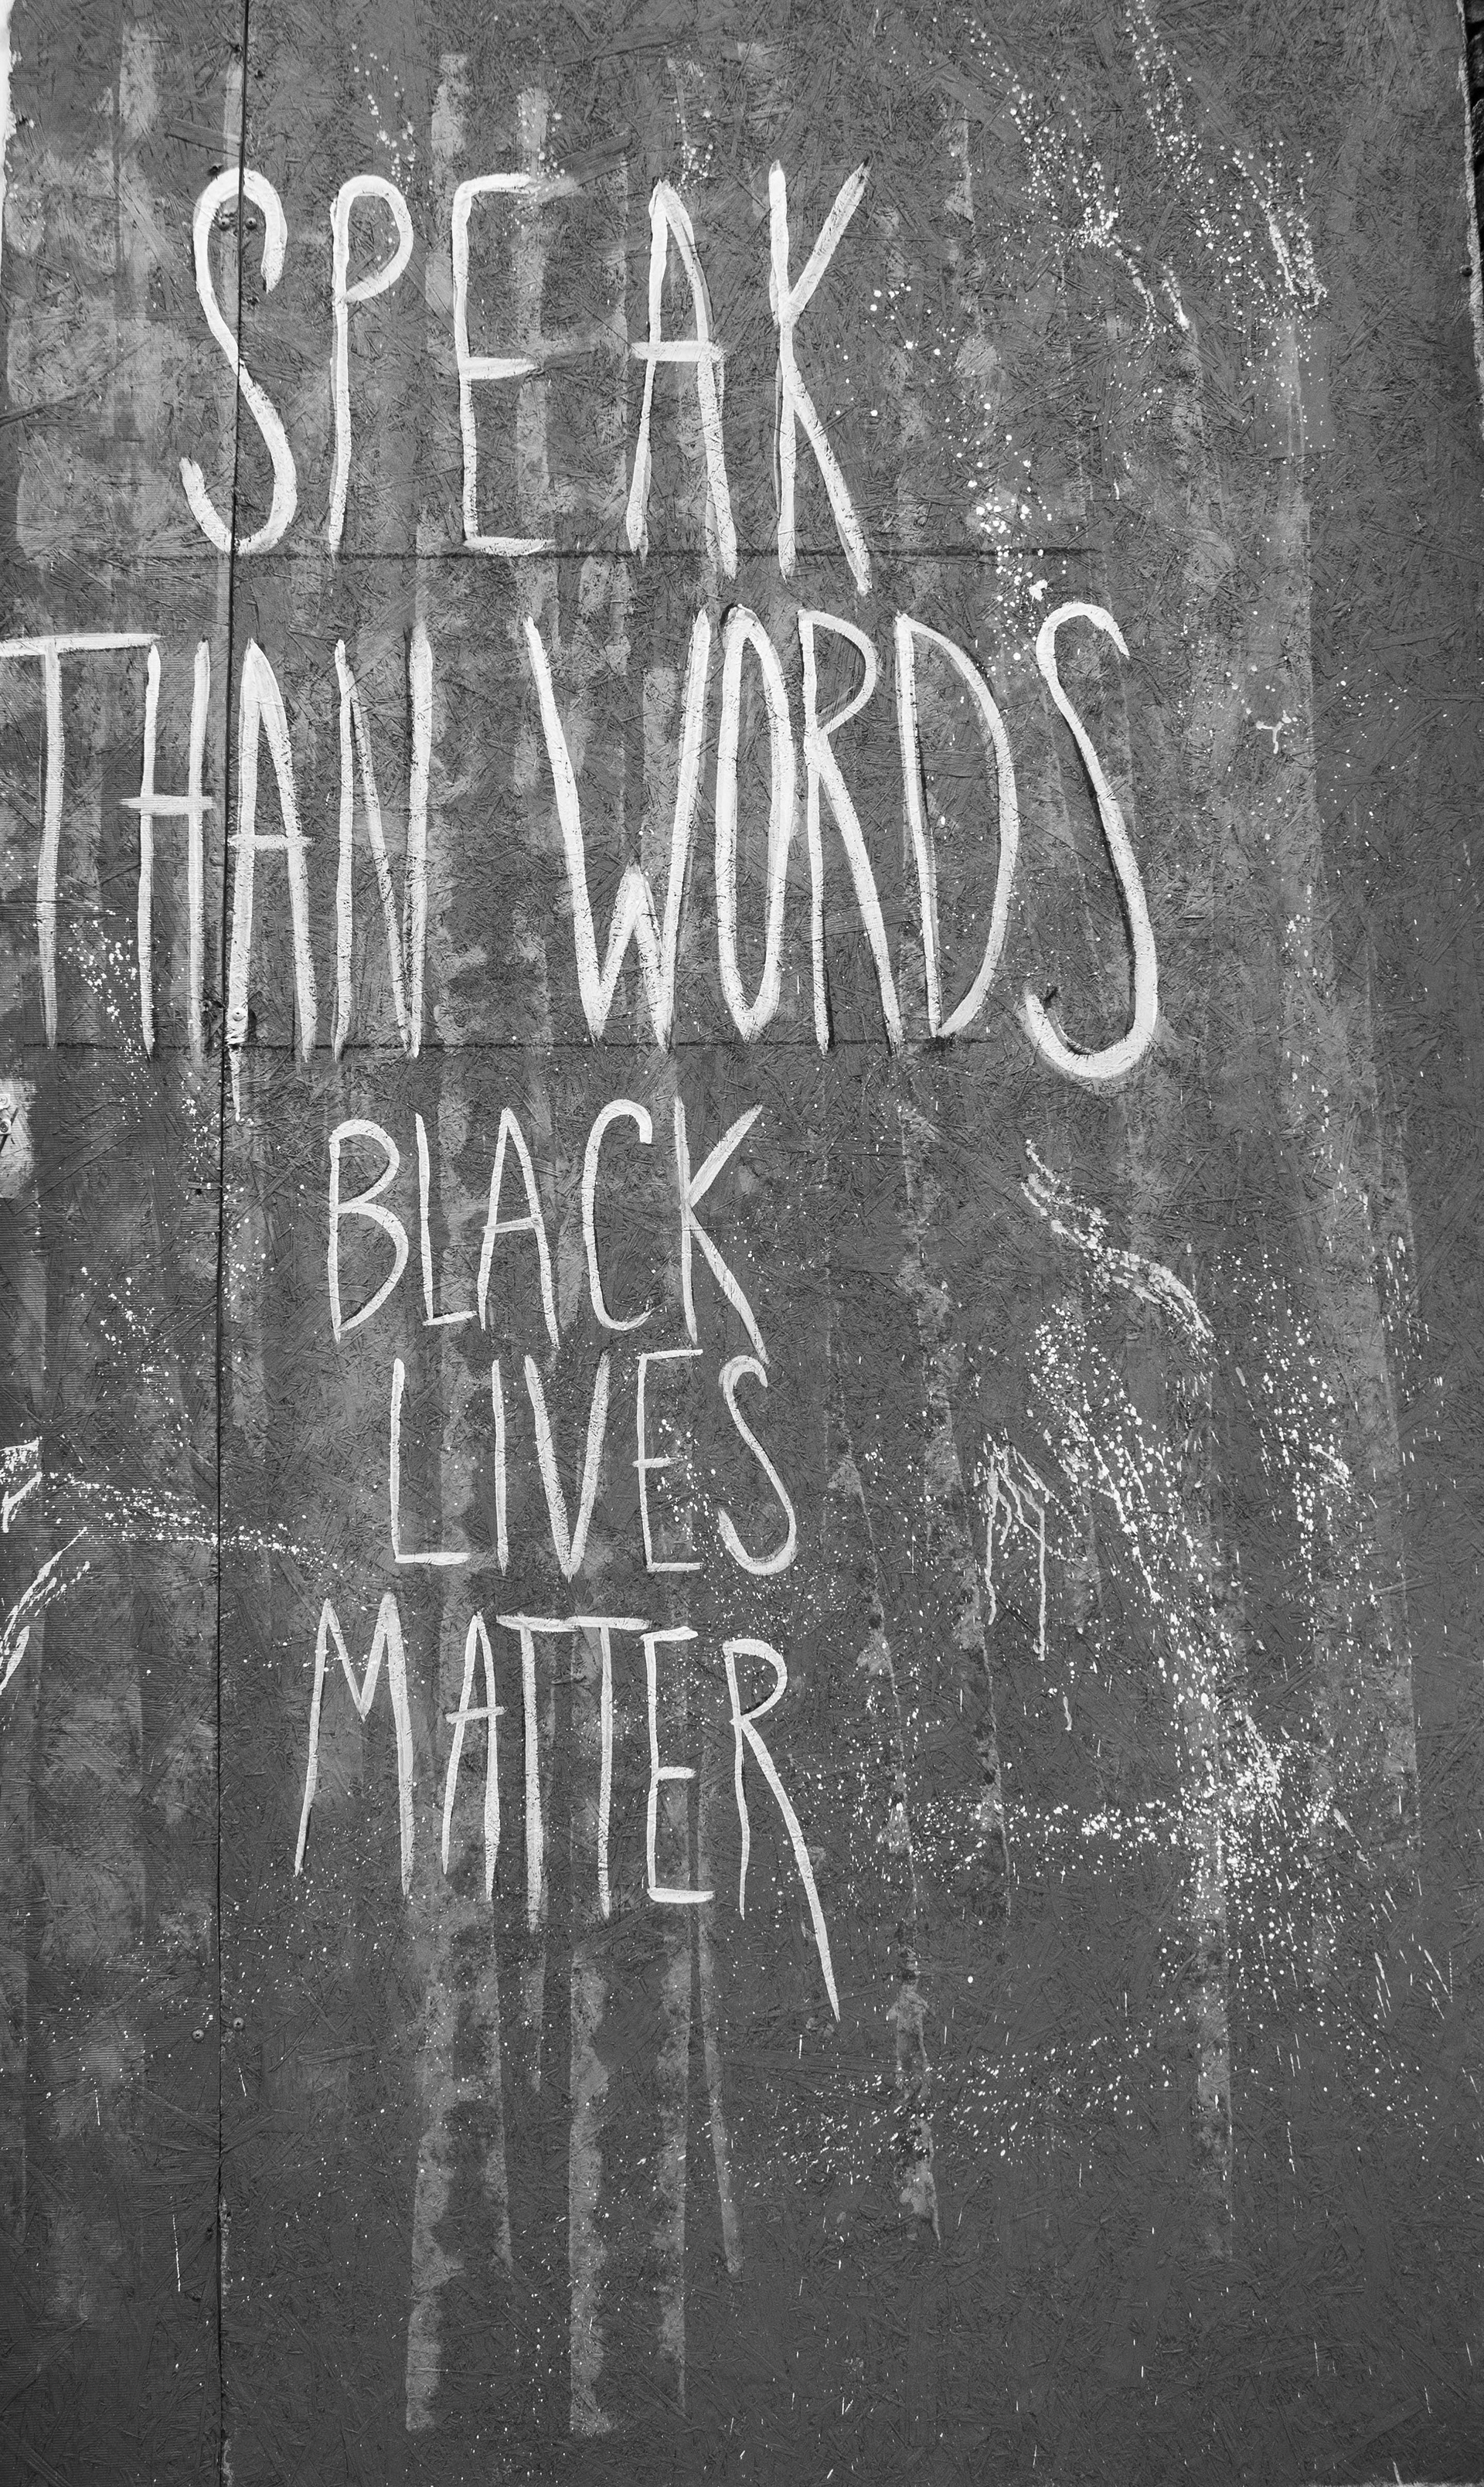 SPEAK
THAN WORDS
BLACK
LIVES
MATTER